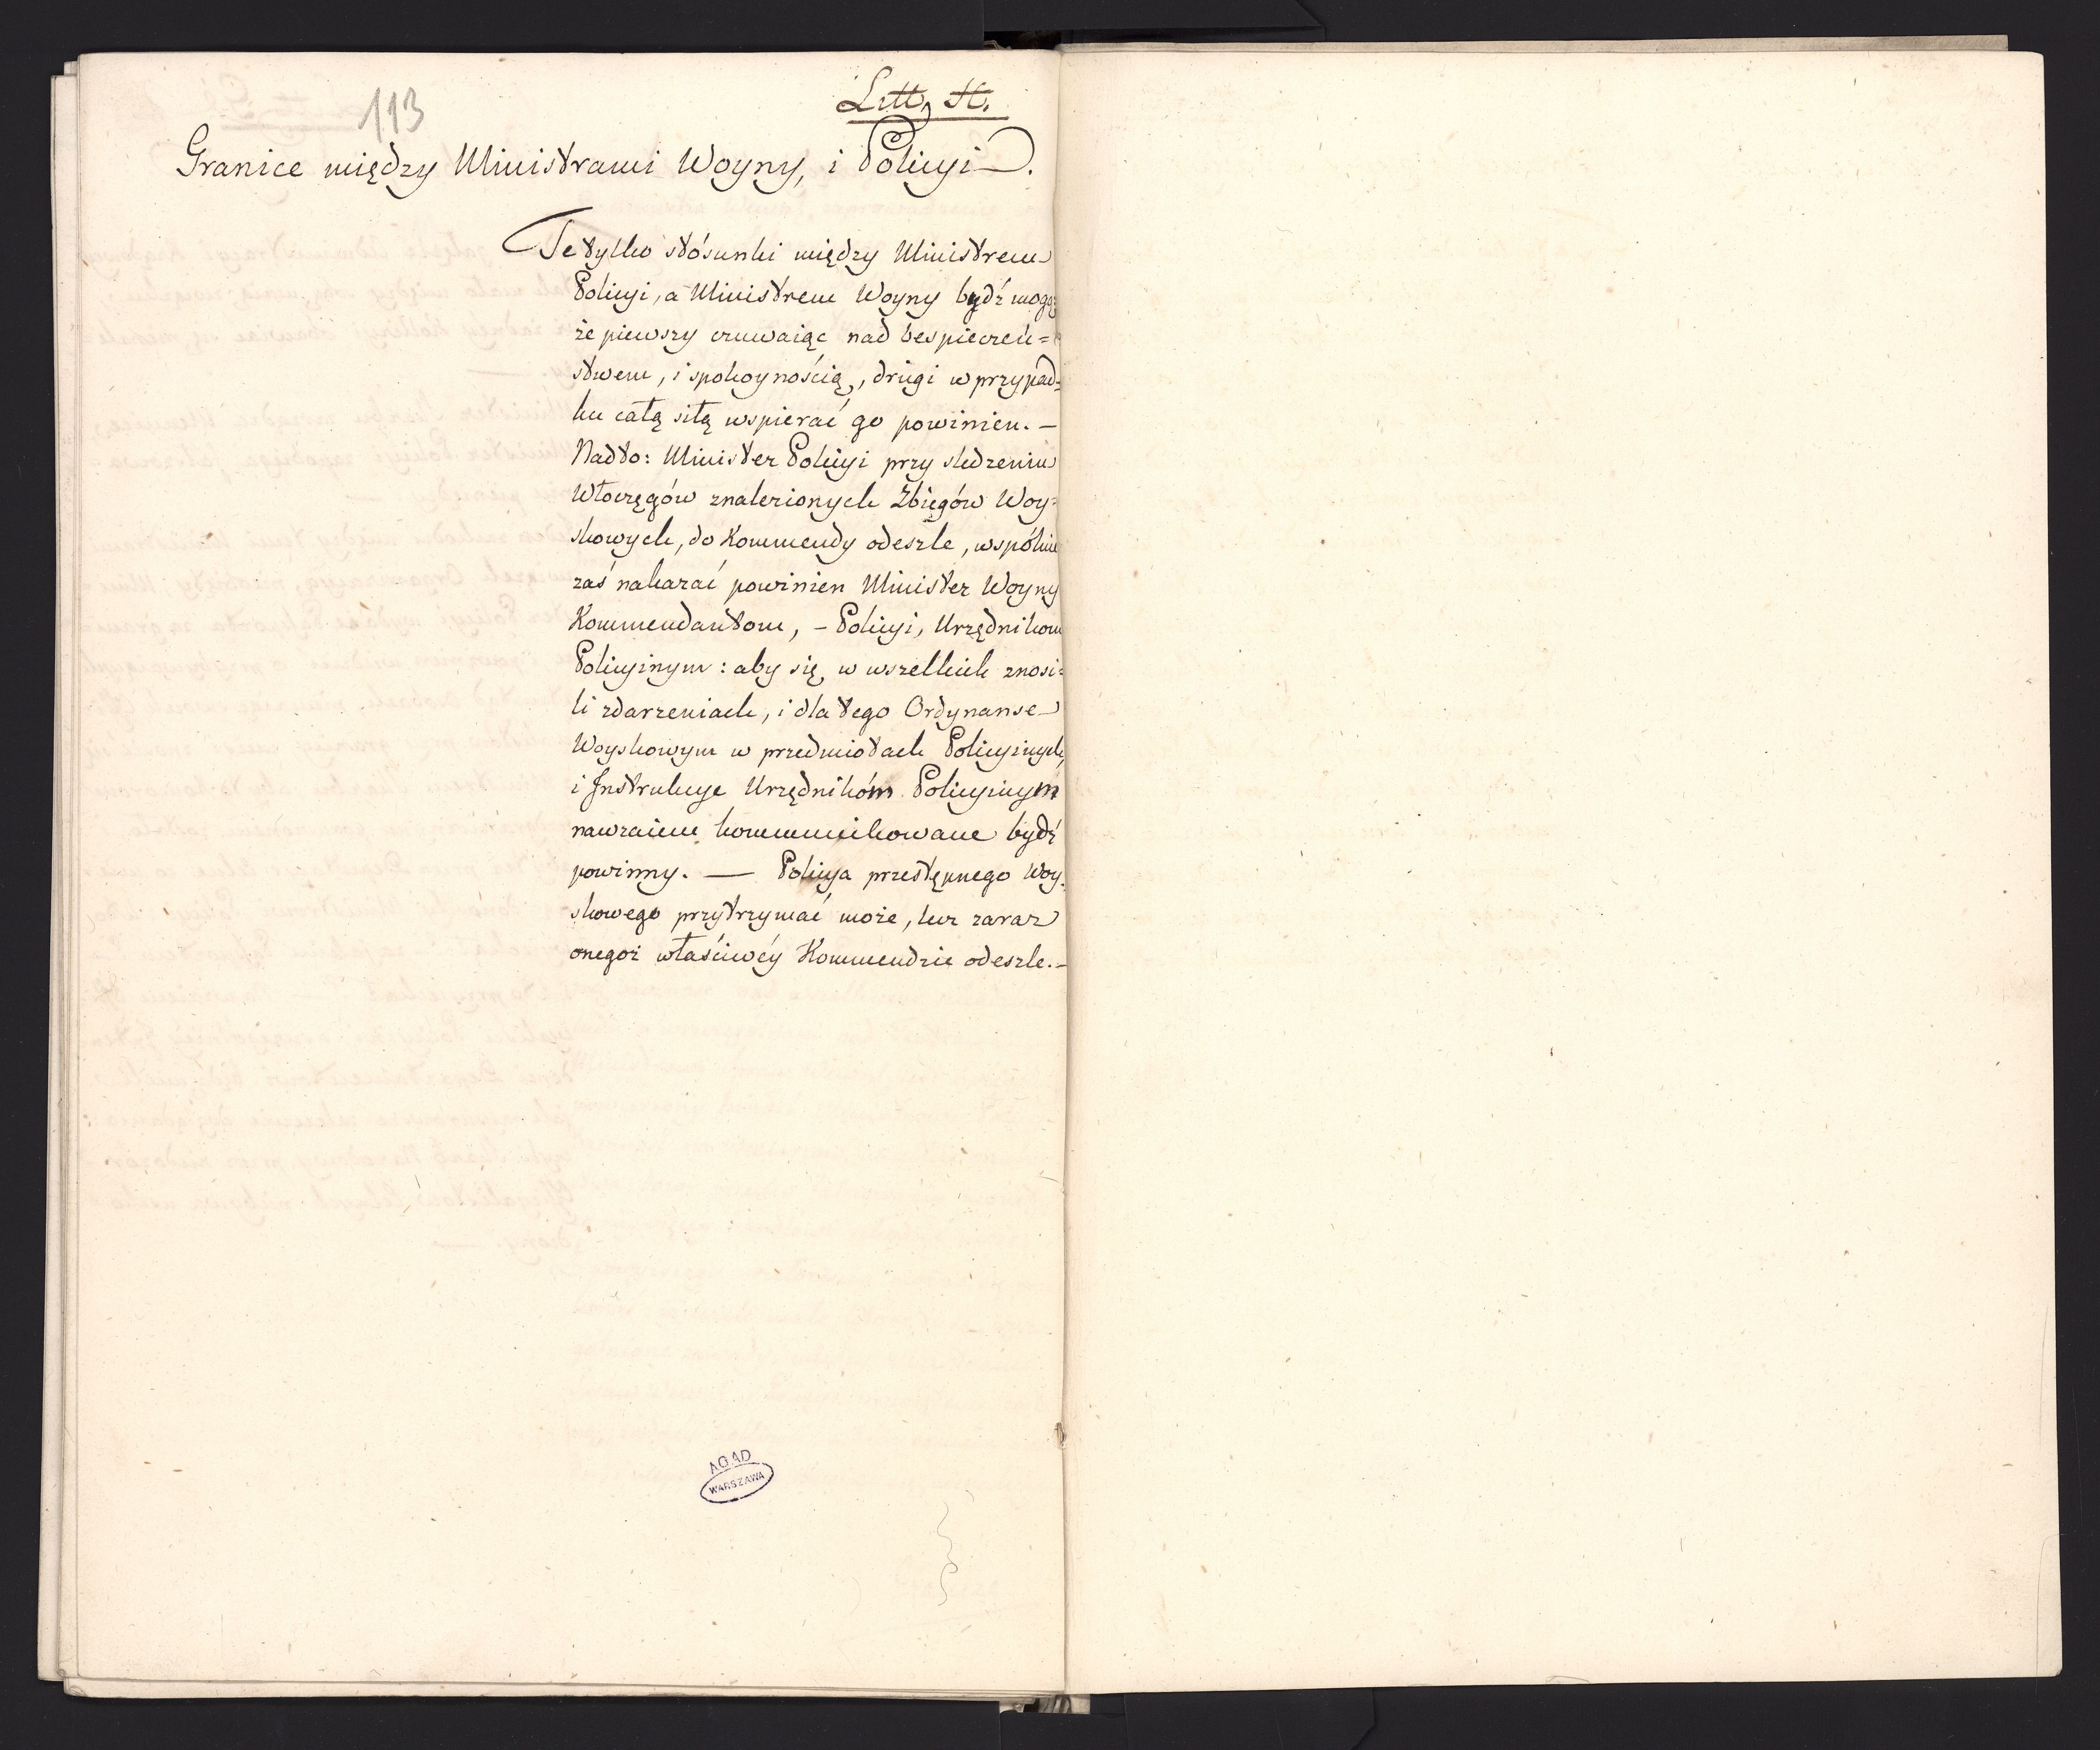 113
Litt. H.
Granice między Ministrami Woyny, i Policyi.
Te tylko stósunki między Ministrem
Policyi, a Ministrem Woyny bydź mogą:
że pierwszy czuwaiąc nad bespieczeń=
stwem, i spokoynością, drugi w przypad=
ku całą siłą wspierać go powinien. —
Nadto: Minister Policyi przy śledzeniu
Włoczęgów znalezionych Zbiegów Woy=
skowych, do Kommendy odeszle, wspólnie
zaś nakazać powinien Minister Woyny
Kommendantom, – Policyi, Urzędnikom
Policyinym: aby się, w wszelkich znosi=
li zdarzeniach, i dla tego Ordynanse
Woyskowym w przedmiotach Policyinych,
i Instrukcye Urzędnikóm Policyinym
nawzaiem kommunikowane bydź
powinny. — Policya przestępnego Woy=
skowego przytrzymać może, lecz zaraz
onegoż właściwéy Kommendzie odeszle. –
AGAD
WARSZAWA